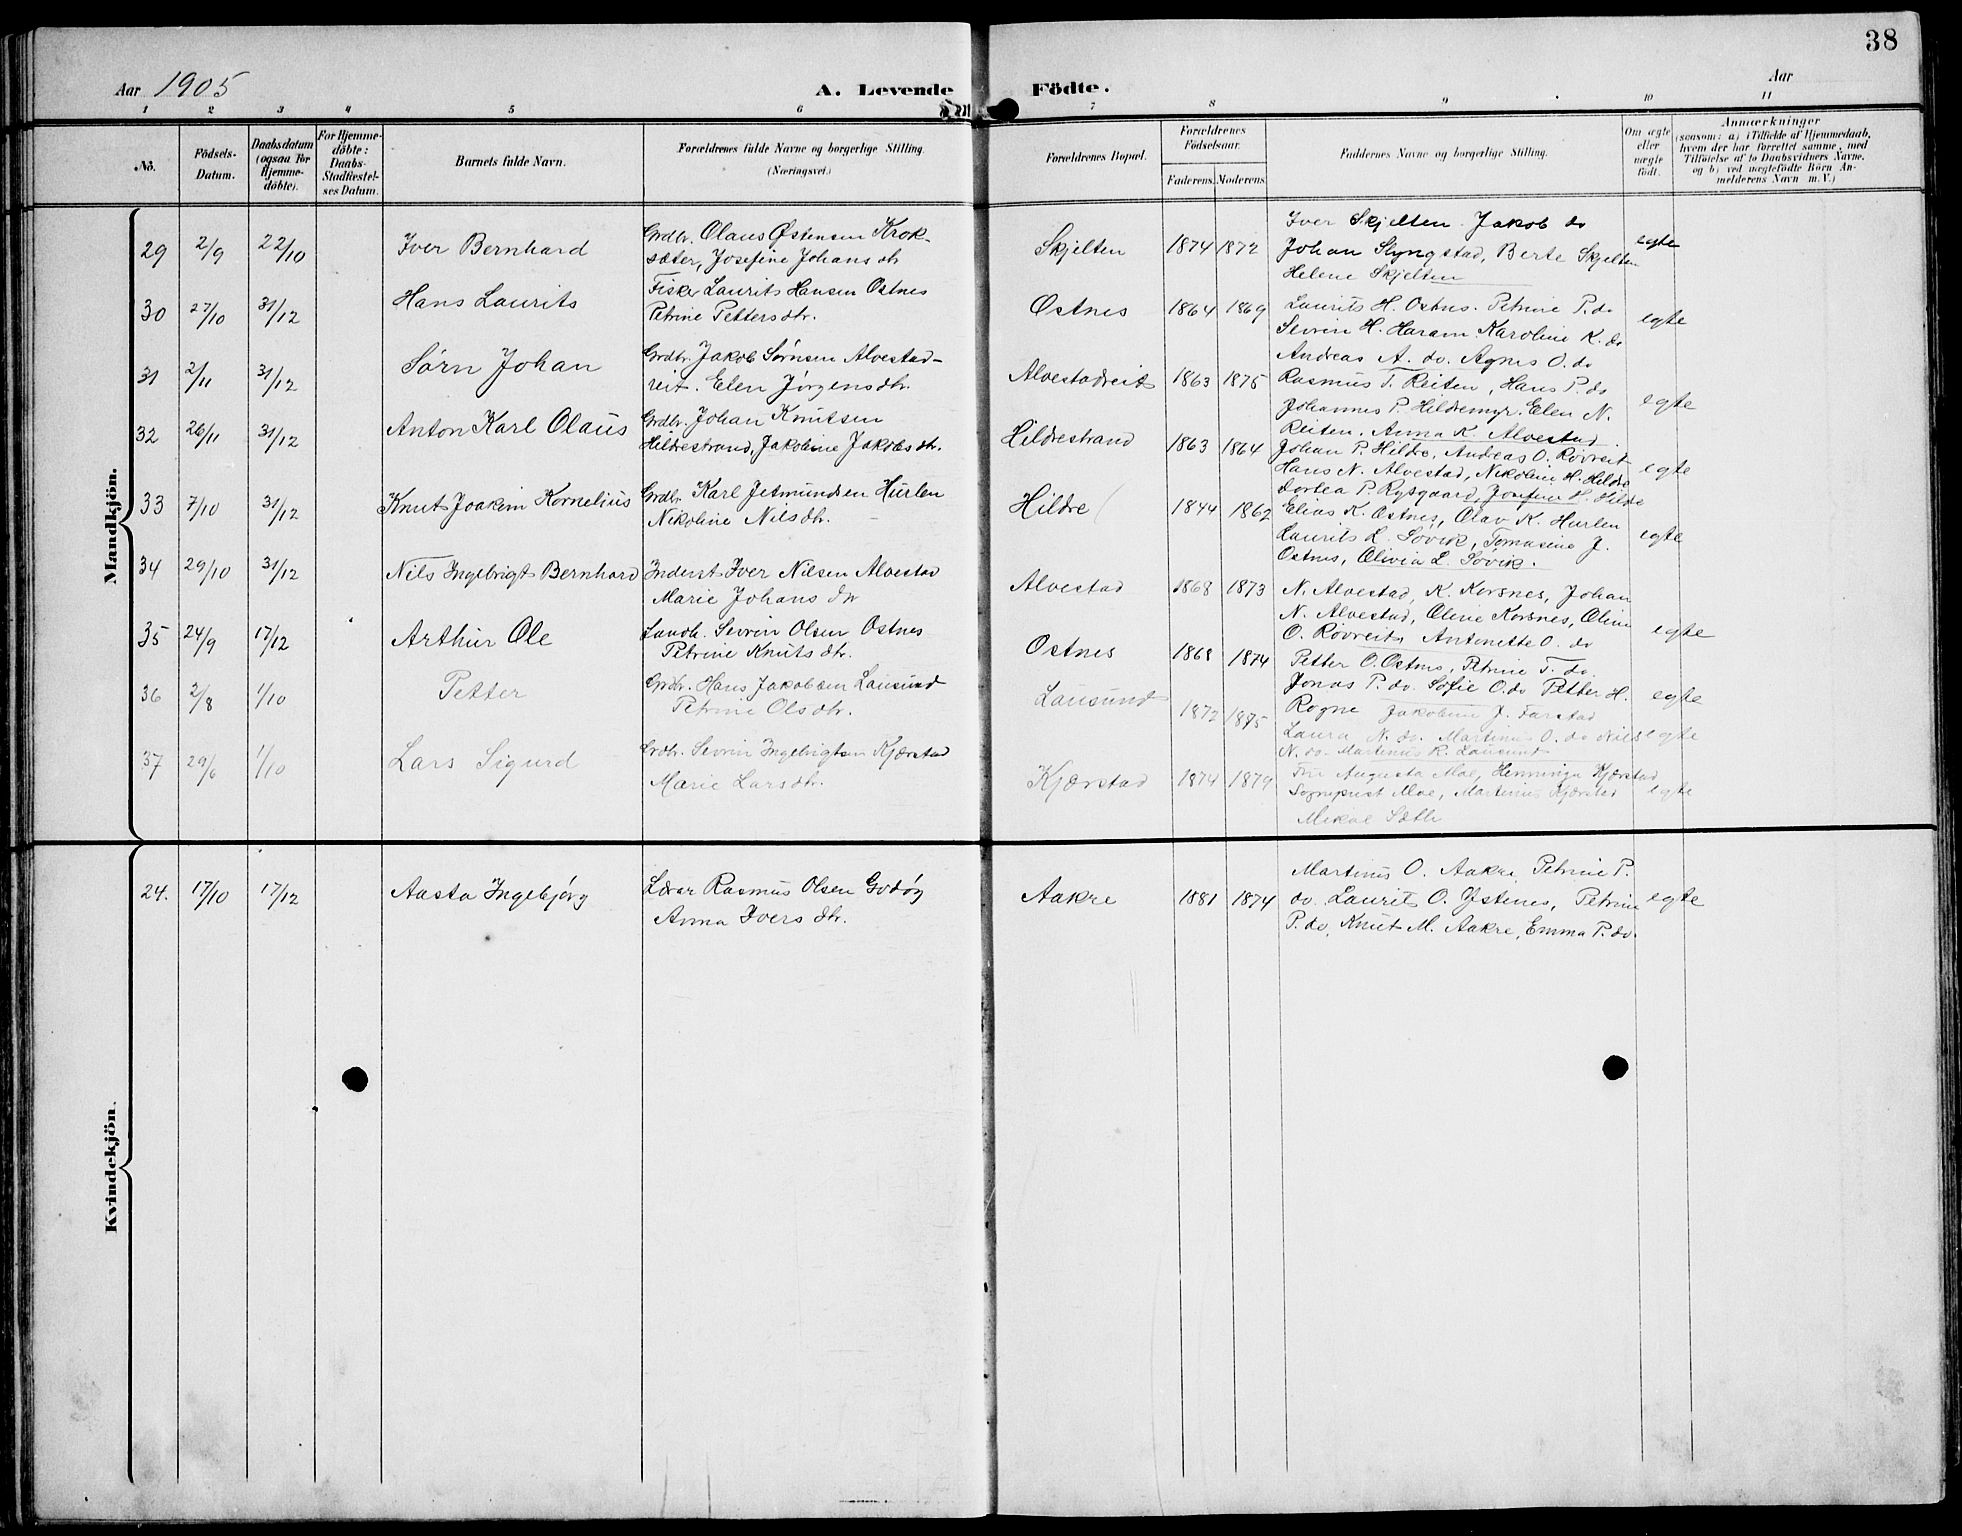 38
Aar 1905
A. Levende Födte.
Aar
1 2 3 4 5 6 7 8 9 10 11
No.
Födsels-Datum.
Daabsdatum (ogsaa for Hjemmedöbte).
For Hjemmedöbte: Daabs-Stadfæstelses Datum.
Barnets fulde Navn.
Forældrenes fulde Navne og borgerlige Stilling.
(Næringsvei.)
Forældrenes Bopæl.
Forældrenes Födselsaar.
Faderens. Moderens.
Faddernes Navne og borgerlige Stilling.
Om ægte eller uægte födt.
Anmærkninger
(saasom: a) i Tilfælde af Hjemmedaab, hvem der har forrettet samme, med Tilföielse af to Daabsvidners Navne, og b) ved uægtefödte Börn Anmelderens Navn m. V.)
Mandkjön.
29 2/9 22/10 Iver Bernhard
Grdbr. Olaus Østensen Krok-
sæter, Josefine Johans dtr
Skjelten 1874 1872
Iver Skjelten. Jakob do
Johan Slyngstad, Berte Skjelten
Helene Skjelten
egte
30 27/10 31/12 Hans Laurits
Fisker Laurits Hansen Ostnes
Petrine Petters dtr.
Ostnes 1864 1869
Laurits H. Ostnes. Petrine P. do
Sevrin H. Haram. Karoline K. do
Andreas A. do. Agnes O. do
egte
31 2/11 31/12 Sørn Johan
Grdbr. Jakob Sørnsen Alvestad-
reit. Elen Jørgens dtr.
Alvestadreit 1863 1875
Rasmus T. Reiten, Hans P. do
Johannes P. Hildremyr. Elen N.
Reiten. Anna K. Alvestad.
egte
32 26/11 31/12 Anton Karl Olaus
Grdbr. Johan Knutsen
Hildrestrand, Jakobine Jakobs dtr.
Hildrestrand 1863 1864
Johan P. Hildre, Andreas O. Røvreit
Hans N. Alvestad, Nikoline H. Hildre
Dortea P. Rygsgaard, Josefine H. Hildre
egte
33 7/10 31/12 Knut Joakim Kornelius
Grdbr. Karl Jetmundsen Hurlen
Nikoline Nils dtr.
Hildre 1844 1862
Elias K. Ostnes, Olav K. Hurlen
Laurits L. Søvik, Tomasine J.
Ostnes, Olivia L. Søvik.
egte
34 29/10 31/12 Nils Ingebrigt Bernhard
Inderst Iver Nilsen Alvestad
Marie Johans dtr
Alvestad 1868 1873
N. Alvestad, K. Korsnes, Johan
N. Alvestad, Oline Korsnes, Oline
O. Røvreit, Antonette O. do
egte
35 24/9 17/12 Arthur Ole
Landh. Sevrin Olsen Ostnes
Petrine Knuts dtr.
Ostnes 1868 1874
Petter O. Ostnes, Petrine T. do.
Jonas P. do. Sofie O. do Petter H.
Rogne Jakobine J. Farstad
egte
36 2/8 1/10 Petter
Grdbr. Hans Jakobsen Lausund
Petrine Ols dtr.
Lausund 1872 1875
Laura N. do. Martinus O. do Nils
N. do. Martinus R. Lausund
egte
37 29/6 1/10 Lars Sigurd
Grdbr. Sevrin Ingebrigtsen Kjærstad
Marie Lars dtr.
Kjærstad 1874 1879
Fru Augusta Moe, Henninga Kjærstad
Sogneprest Moe, Martinus Kjærstad
Mikal Sætre
egte
Kvindekjön.
24. 17/10 17/12 Aasta Ingebjørg
Lærer Rasmus Olsen Godøy
Anna Ivers dtr.
Aakre 1881 1874
Martinus O. Aakre, Petrine P.
do. Laurits O. Østenes, Petrine
P. do, Knut M. Aakre, Emma P. do.
egte